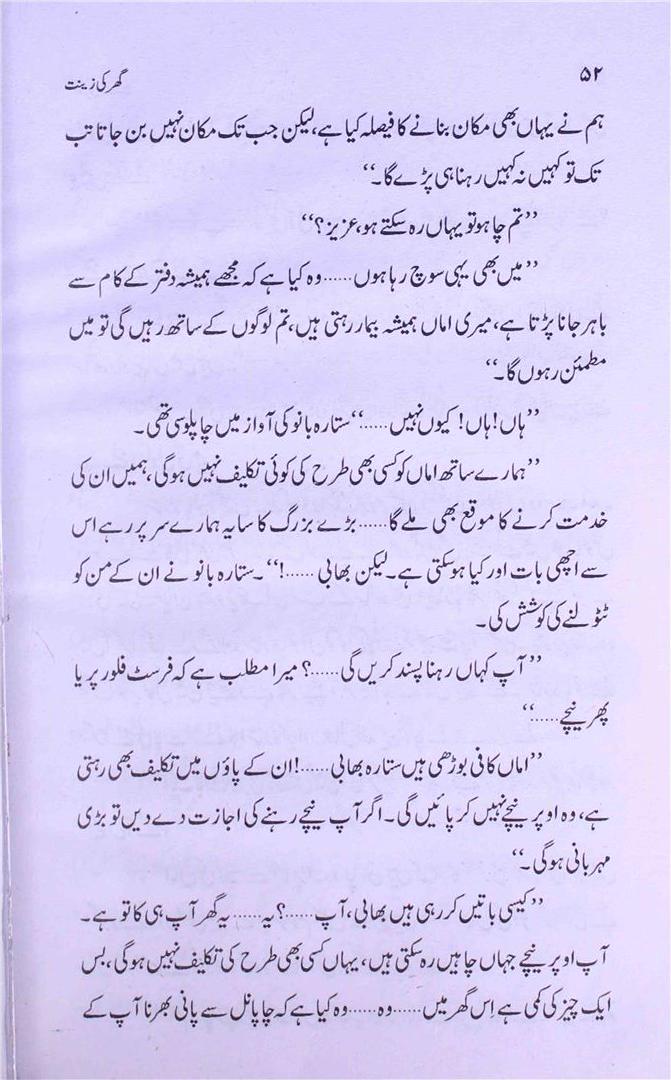 ۵۲ گھر کی زینت
ہم نے یہاں بھی مکان بنانے کا فیصلہ کیا ہے، لیکن جب تک مکان نہیں بن جاتا تب
تک تو کہیں نہ کہیں رہنا ہی پڑے گا۔‘‘
’’تم چاہو تو یہاں رہ سکتے ہو، عزیز؟‘‘
’’میں بھی یہی سوچ رہا ہوں...... وہ کیا ہے کہ مجھے ہمیشہ دفتر کے کام سے
باہر جانا پڑتا ہے، میری اماں ہمیشہ بیمار رہتی ہیں، تم لوگوں کے ساتھ رہیں گی تو میں
مطمئن رہوں گا۔‘‘
’’ہاں! ہاں! کیوں نہیں.....‘‘ ستارہ بانو کی آواز میں چاپلوسی تھی۔
’’ہمارے ساتھ اماں کو کسی بھی طرح کی کوئی تکلیف نہیں ہوگی، ہمیں ان کی
خدمت کرنے کا موقع بھی ملے گا...... بڑے بزرگ کا سایہ ہمارے سر پر رہے اس
سے اچھی بات اور کیا ہوسکتی ہے۔ لیکن بھابی......!‘‘۔ ستارہ بانو نے ان کے من کو
ٹٹولنے کی کوشش کی۔
’’آپ کہاں رہنا پسند کریں گی.....؟ میرا مطلب ہے کہ فرسٹ فلور پر یا
پھر نیچے.....‘‘
’’اماں کافی بوڑھی ہیں ستارہ بھابی.....! ان کے پاؤں میں تکلیف بھی رہتی
ہے، وہ اوپر نیچے نہیں کر پائیں گی۔ اگر آپ نیچے رہنے کی اجازت دے دیں تو بڑی
مہربانی ہوگی۔‘‘
’’کیسی باتیں کر رہی ہیں بھابی، آپ.....؟ یہ...... یہ گھر آپ ہی کا تو ہے۔
آپ اوپر نیچے جہاں چاہیں رہ سکتی ہیں، یہاں کسی بھی طرح کی تکلیف نہیں ہوگی، بس
ایک چیز کی کمی ہے اِس گھر میں...... وہ...... وہ کیا ہے کہ چاپانل سے پانی بھرنا آپ کے